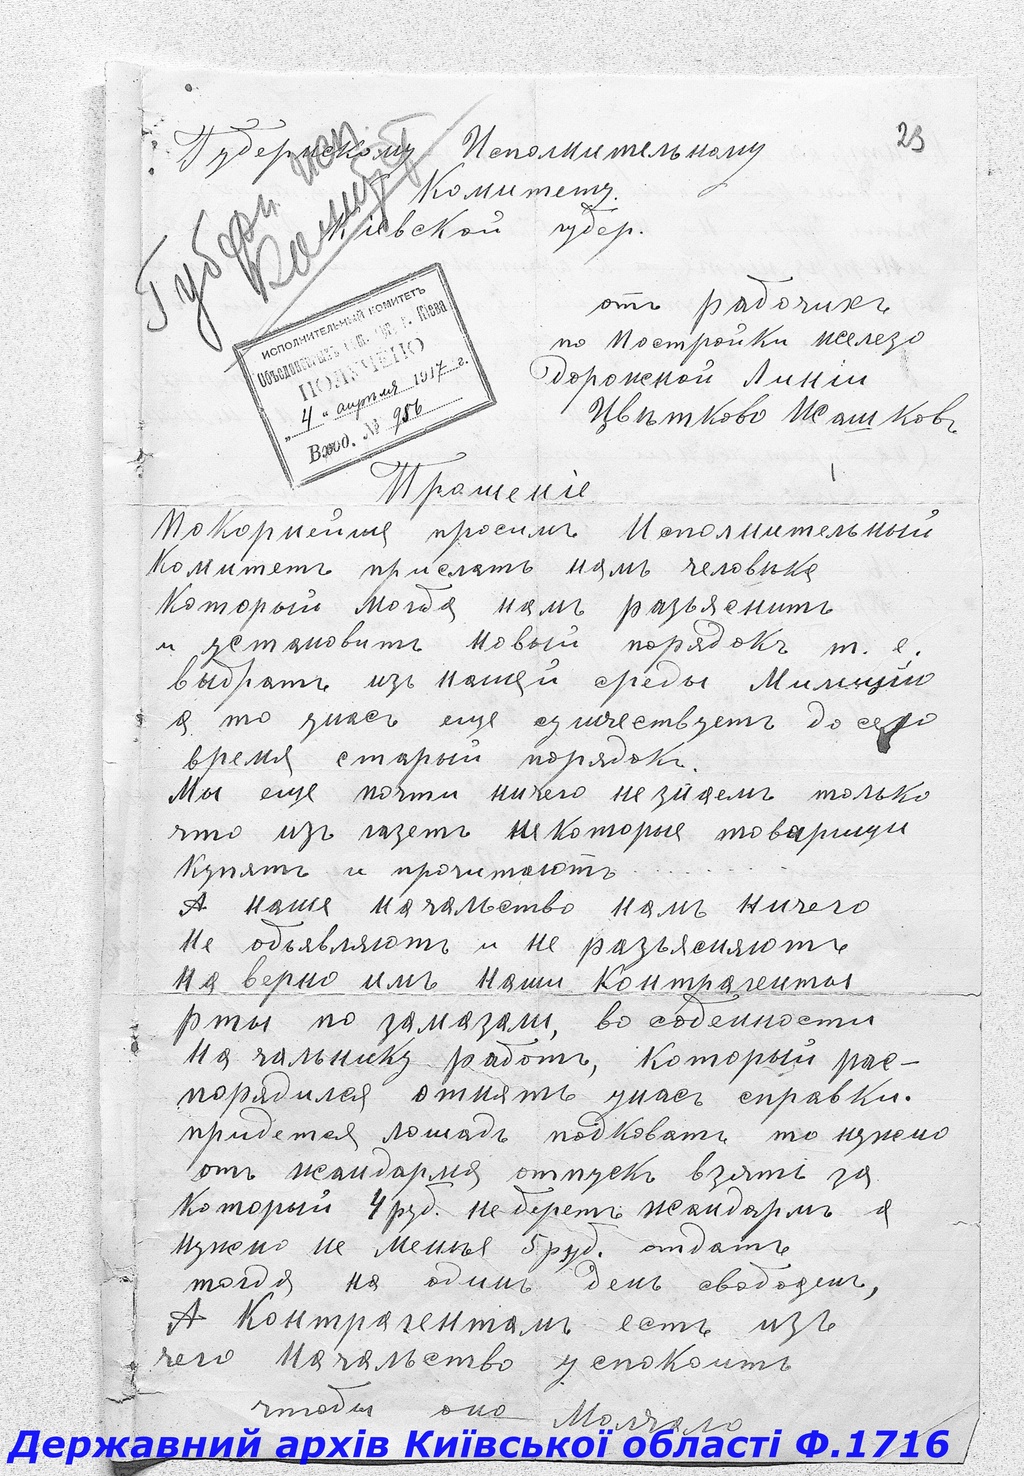 23
Губерн исп
Комитет
Губернскому Исполнительному
Комитету.
Кіевской губер.
ИСПОЛНИТЕЛЬНЫЙ КОМИТЕТЪ
г. Кіева
ПОЛУЧЕНО
„4“ апреля 1917 г.
Вход. № 956
отъ рабочихъ
по постройки железо
дорожной Линіи
Цвѣтково Исашковъ
Прошеніе
Покорнейше просимъ Исполнительный
Комитетъ прислать намъ человѣка
который могбы намъ разъяснить
и установить новый порядокъ т. е.
выбрать изъ нашей среды Милицію
а то унасъ еще существуетъ до сего
время старый порядокъ.
Мы еще почти ничего незнаемъ только
что изъ газетъ некоторые товарищи
купятъ и прочитаютъ . . . . . .
А наше начальство намъ ничего
не объявляютъ и не разъясняютъ
на верно имъ наши контрагенты
рты по замазали, во собенности
на чальнику работъ, который рас-
порядился отнять унасъ справки.
придется лошадь подковать то нужно
отъ жандарма отпускъ взять за
который 4 руб. не беретъ жандармъ а
нужно не меньше 5 руб. отдать
тогда на одинъ день свободенъ,
А Контрагентамъ есть изъ
чего начальство успокоить
чтобы оно молчало
Державний архів Київської області Ф.1716